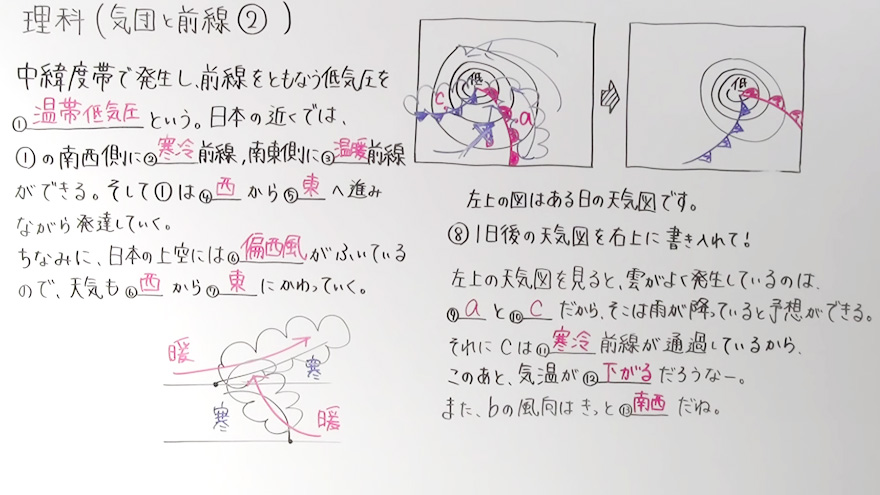 理科(気団と前線②)
中緯度帯で発生し、前線をともなう低気圧を
①温帯低気圧という。日本の近くでは、
①の南西側に②寒冷前線、南東側に③温暖前線
ができる。そして①は④西から⑤東へ進み
ながら発達していく。
ちなみに、日本の上空には⑥偏西風がふいている
ので、天気も⑥西から⑦東にかわっていく。
暖
寒
寒
暖
低
c
a
b
低
左上の図はある日の天気図です。
⑧1日後の天気図を右上に書き入れて!
左上の天気図を見ると、雲がよく発生しているのは、
⑨aと⑩cだから、そこは雨が降っていると予想ができる。
それにcは⑪寒冷前線が通過しているから、
このあと、気温が⑫下がるだろうなー。
また、bの風向はきっと⑬南西だね。